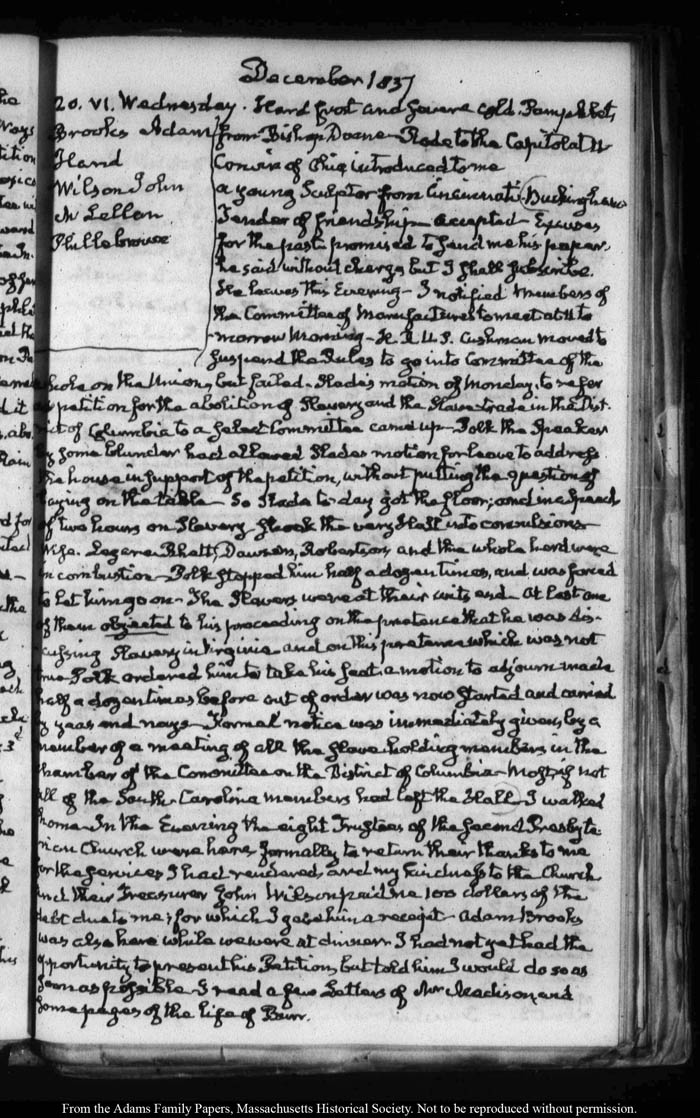 December 1837
20. VI. Wednesday. Hard frost and severe cold. Pamphlet,
Brooks Adam
Hand
Wilson John
McLellen
Phillebrowe
from Bishop Doane. Rode to the Capitol at 11
Corwin of Ohio introduced to me
a young Sculptor from Cincinnati. Buckingham's
Tender of friendship accepted. Excuses
for the past; promised to send me his paper,
he said without charge but I shall subscribe.
He leaves this Evening. I notified Members of
the Committee of Manufactures to meet at 11 to
morrow Morning. H.R.U.S. Cushman moved to
suspend the Rules to go into Committee of the
whole on the Union, but failed. Slade's motion of Monday, to refer
petition for the abolition of Slavery and the Slave trade in the Dist-
rict of Columbia to a Select Committee came up. Polk the Speaker
by some blunder had allowed Slades motion for leave to address
the house in support of the petition, without putting the question of
laying on the table. So Slade to-day got the floor; and in a Speech
of two hours on Slavery shook the very Hall into convulsions
Wise. Legare Rhett, Dawson, Robertson, and the whole herd were
in combustion. Polk stopped him half a dozen times, and was forced
to let him go on. The Slavers were at their wits end. At last one
of them objected to his proceeding on the pretence that he was dis-
cussing Slavery in Virginia and on this pretence which was not
true Polk ordered him to take his seat. a motion to adjourn made
half a dozen times before out of order was now started and carried
by yeas and nays. Formal notice was immediately given, by a
member of a meeting of all the slave-holding members in the
chamber of the Committee on the District of Columbia. Most, if not
all of the South-Carolina members had left the Hall. I walked
home. In the Evening the eight Trustees of the Second Presbyte-
rian Church were here formally to return their thanks to me
for the services I had rendered, and my kindness to the Church
and their Treasurer John Wilson paid me 100 dollars of the
debt due to me; for which I gave him a receipt. Adam Brooks
was also here while we were at dinner. I had not yet had the
opportunity to present his Petition, but told him I would do so as
soon as possible. I read a few Letters of Mr Madison and
some pages of the life of Burr.
From the Adams Family Papers, Massachusetts Historical Society. Not to be reproduced without permission.